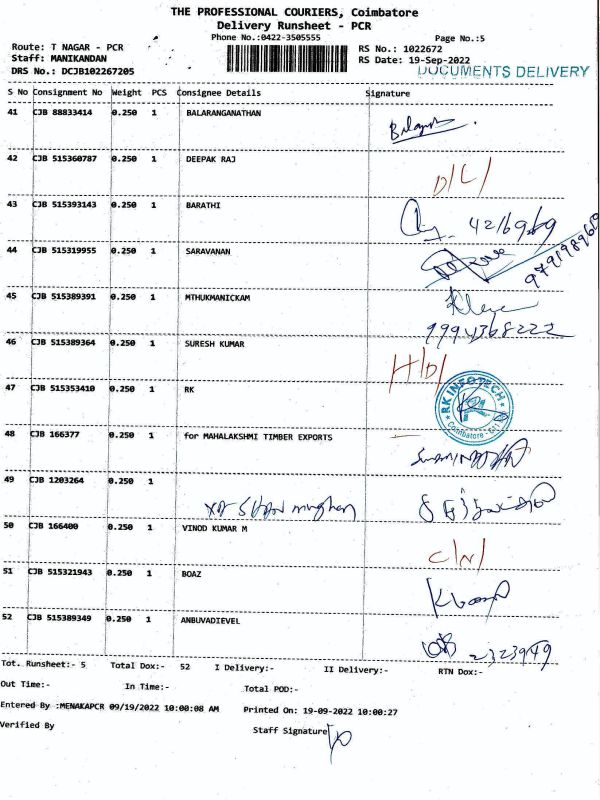 THE PROFESSIONAL COURIERS, Coimbatore
Delivery Runsheet - PCR
Phone No.:0422-3505555
Page No.:5
Route: T NAGAR - PCR
RS No.: 1022672
Staff: MANIKANDAN
RS Date: 19-Sep-2022
DRS No.: DCJB102267205
DOCUMENTS DELIVERY
S No Consignment No Weight PCS Consignee Details Signature
41 CJB 88833414 0.250 1 BALARANGANATHAN
42 CJB 515360787 0.250 1 DEEPAK RAJ
D/L/
43 CJB 515393143 0.250 1 BARATHI
44 CJB 515319955 0.250 1 SARAVANAN
45 CJB 515389391 0.250 1 MTHUKMANICKAM
9994368222
46 CJB 515389364 0.250 1 SURESH KUMAR
H/D/
47 CJB 515353410 0.250 1 RK
RK INFOTECH
Coimbatore
48 CJB 166377 0.250 1 for MAHALAKSHMI TIMBER EXPORTS
49 CJB 1203264 0.250 1
50 CJB 166400 0.250 1 VINOD KUMAR M
C/N/
51 CJB 515321943 0.250 1 BOAZ
52 CJB 515389349 0.250 1 ANBUVADIEVEL
2323949
Tot. Runsheet:- 5 Total Dox:- 52 I Delivery:- II Delivery:- RTN Dox:-
Out Time:- In Time:- Total POD:-
Entered By :MENAKAPCR 09/19/2022 10:00:08 AM Printed On: 19-09-2022 10:00:27
Verified By Staff Signature